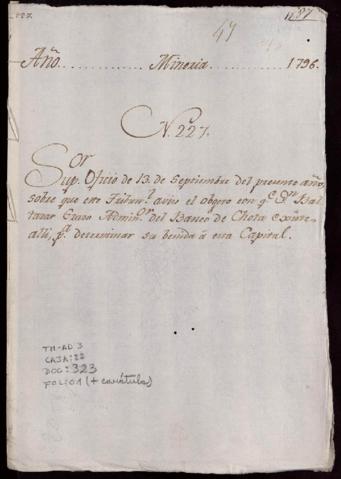 227.
47
Año. Mineria. 1796.
N. 227.
Sor
Sup. Oficio de 13. de Septiembre del presente año,
sobre que este Tribunl. avise el objeto con qe. Dn. Bal
tazar Adminor. del Banco de Chota
alli, pa. determinar su benida á esta Capital.
TM-AD 3
CAJA: 22
DOC: 323
FOLIO 1 (+ carátula)